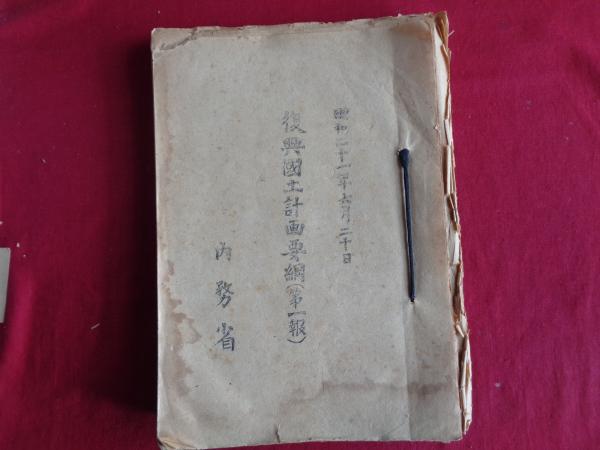 昭和二十一年六月二十日
復興國土計画要綱(第一報)
內務省